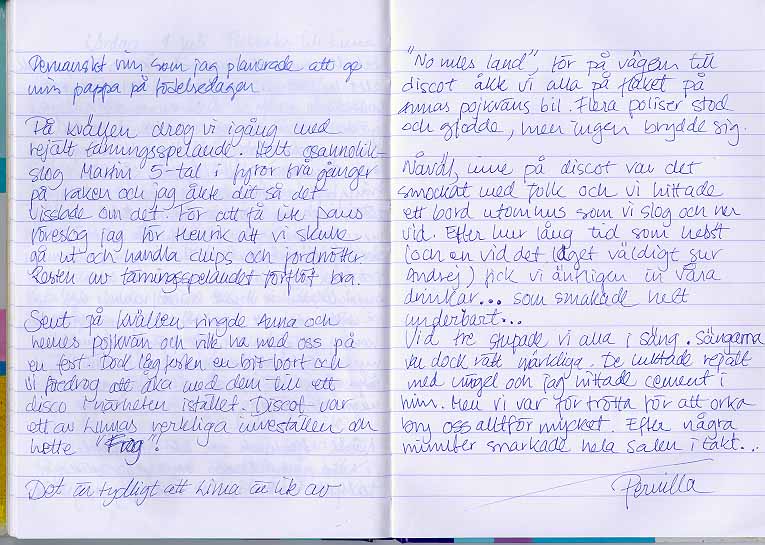 Peruanskt vin som jag planerade att ge
min pappa på födelsedagen.
På kvällen drog vi igång med
rejält tärningsspelande. Helt osannolik-
slog Martin 5-tal i fyror två gånger
på raken och jag åkte dit så det
visslade om det. För att få lite paus
föreslog jag för Henrik att vi skulle
gå ut och handla chips och jordnötter
Resten av tärningsspelandet förflöt bra.
Sent på kvällen ringde Anna och
hennes pojkvän och ville ha med oss på
en fest. Dock låg festen en bit bort och
vi föredrog att åka med dem till ett
disco i närheten istället. Discot var
ett av Limas verkliga inneställen och
hette "Frog".
Det är tydligt att Lima är lite av
"No rules land", för på vägen till
discot åkte vi alla på flaket på
Annas pojkväns bil. Flera poliser stod
och glodde, men ingen brydde sig.
Nåväl, inne på discot var det
smockat med folk och vi hittade
ett bord utomhus som vi slog oss ner
vid. Efter hur lång tid som helst
(och en vid det laget väldigt sur
Andrej) fick vi äntligen in våra
drinkar... som smakade helt
underbart...
Vid tre stupade vi alla i säng. Sängarna
var dock rätt märkliga. De luktade rejält
med mögel och jag hittade cement i
min. Men vi var för trötta för att orka
bry oss alltför mycket. Efter några
minuter snarkade hela salen i takt...
Pernilla